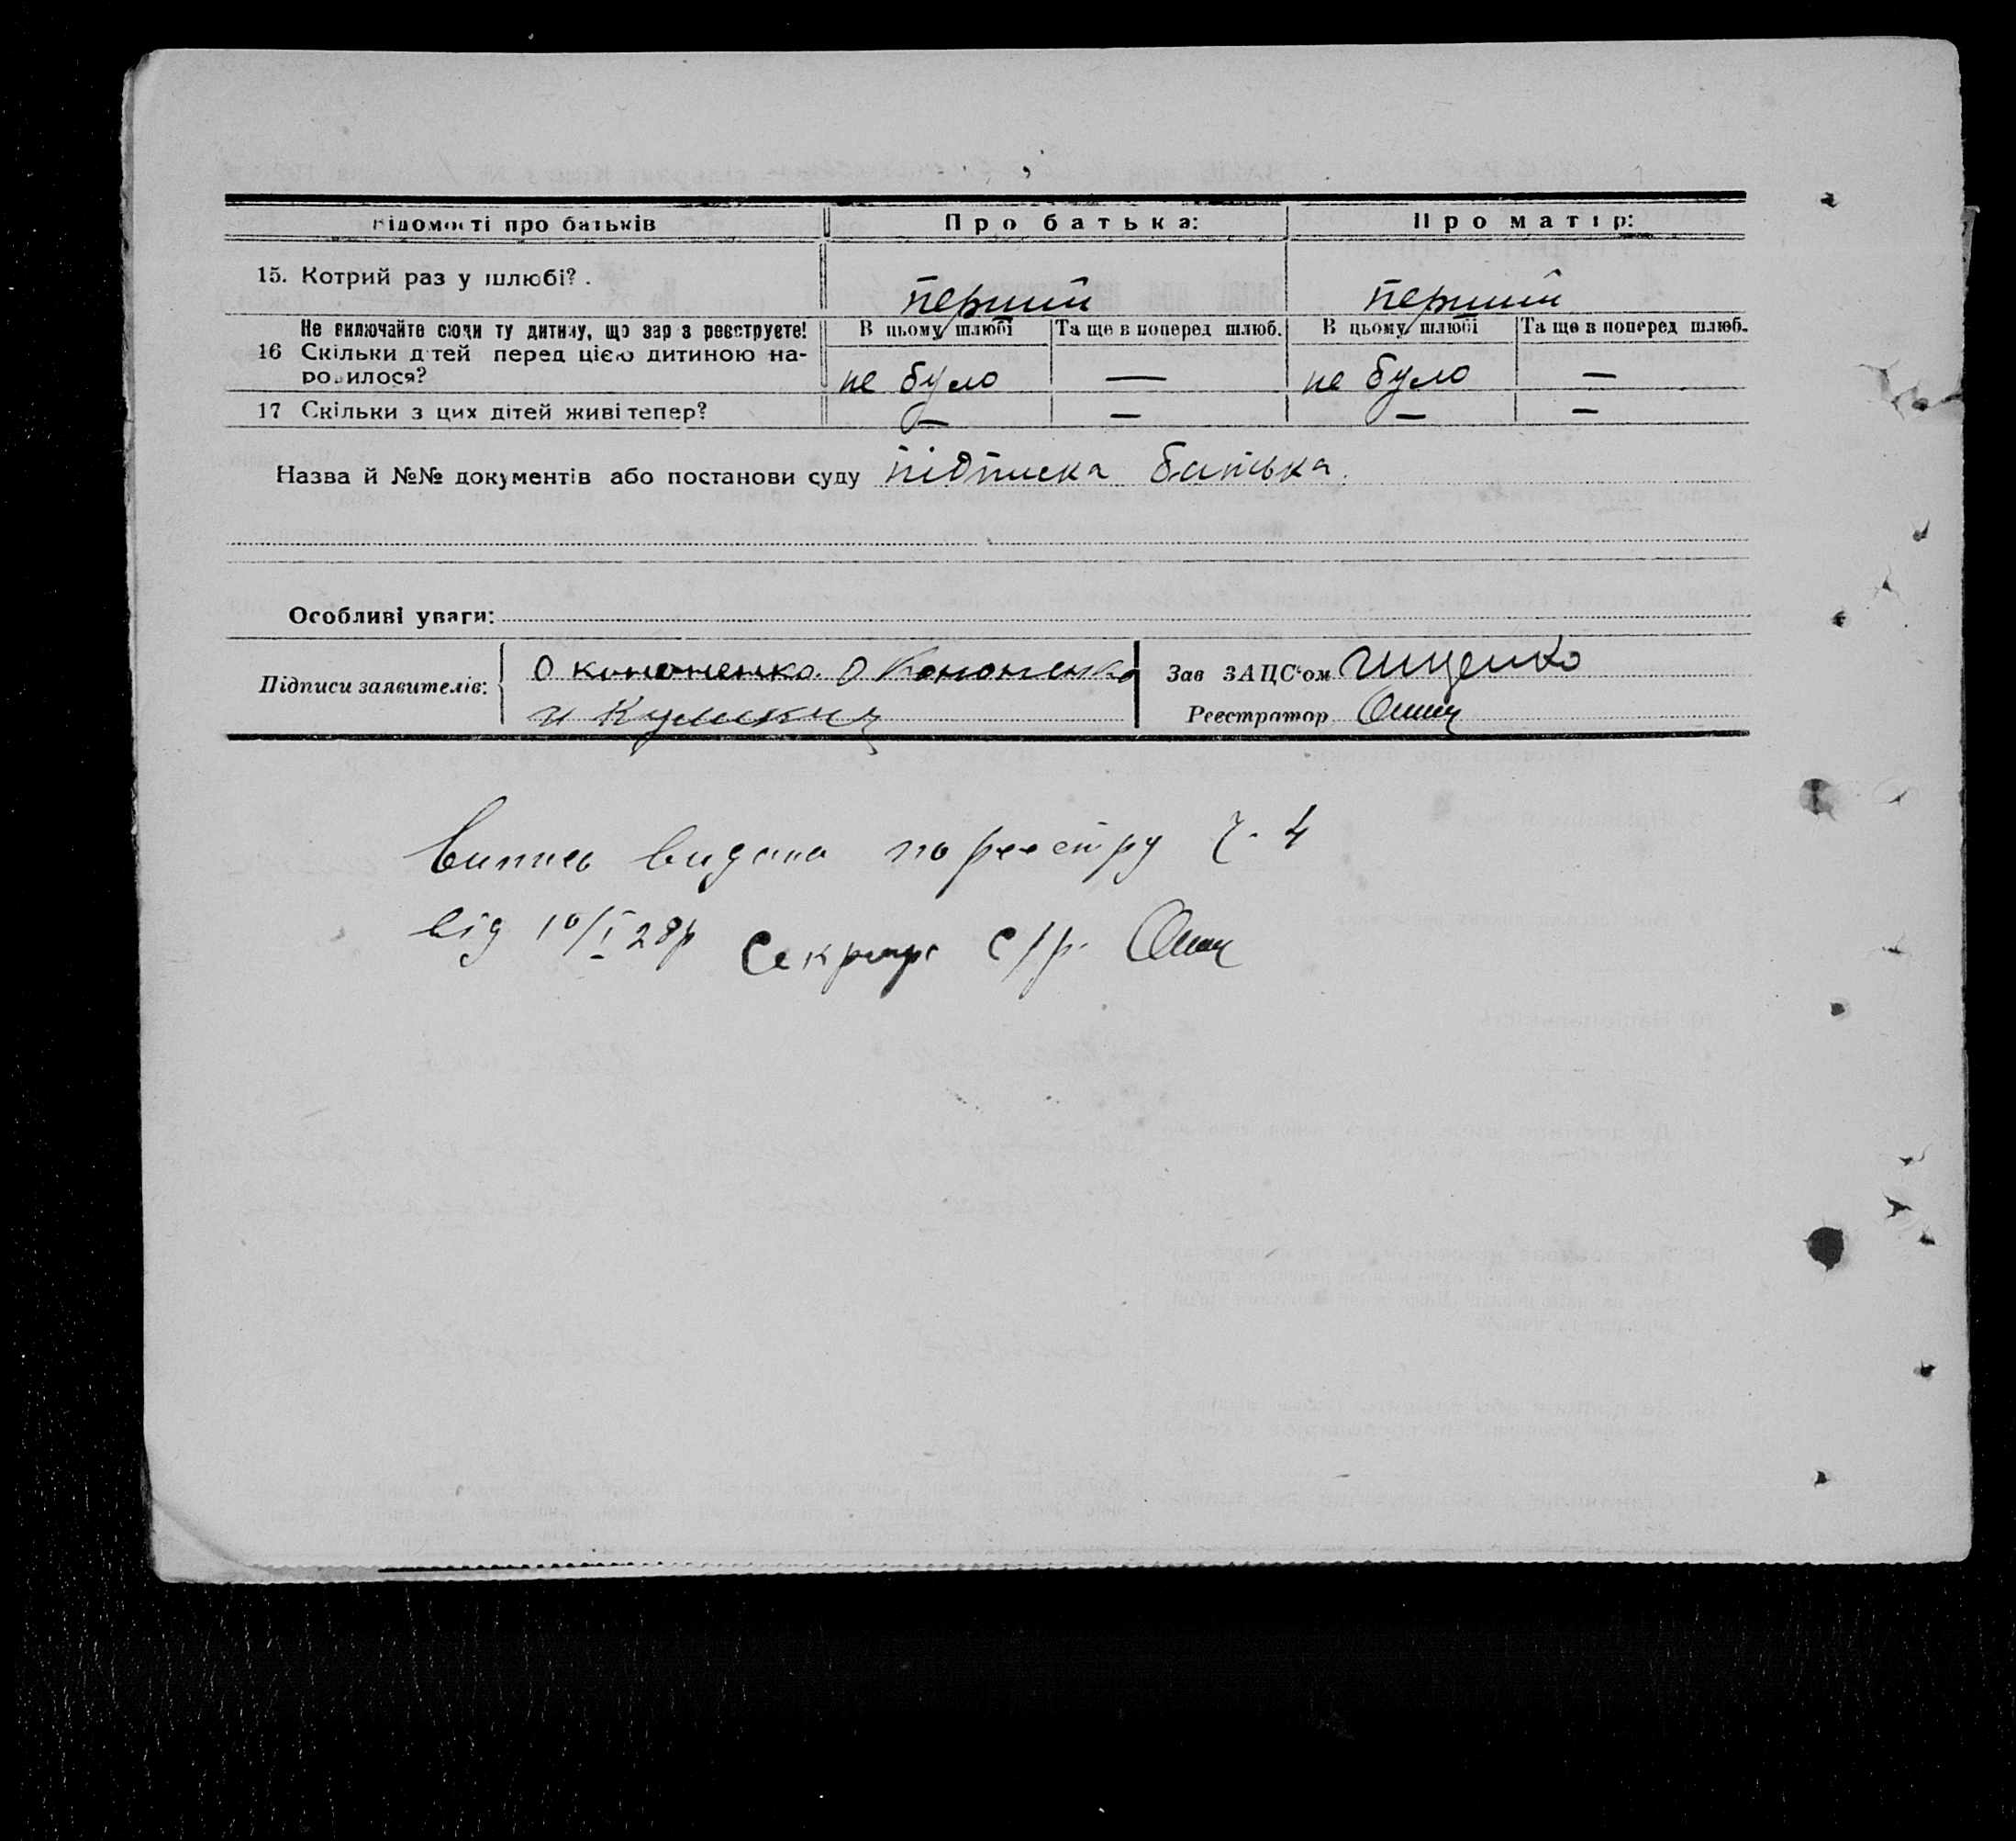 Відомості про батьків Про батька: Про матір:
15. Котрий раз у шлюбі? перший перший
Не включайте сюди ту дитину, що зараз реєструєте! В цьому шлюбі Та ще в поперед шлюб. В цьому шлюбі Та ще в поперед шлюб.
16 Скільки дітей перед цією дитиною на-
родилося? не було — не було —
17 Скільки з цих дітей живі тепер? — — — —
Назва й №№ документів або постанови суду підписка батька.
Особливі уваги:
Підписи заявителів: О кононенко. О Кононенко Зав ЗАЦС'ом Гищенко
и Реєстратор
Випись видана по реєстру Ч. 4
від 10/I 28р Секретар с/р.